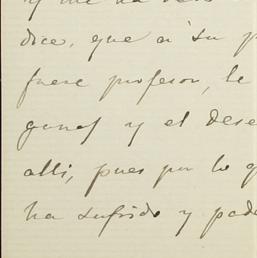 y me ha
dice, que a su p
fuese profesor, le
ganas y el dese
alli, pues por lo q
ha sufrido y pade